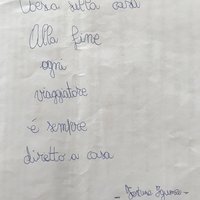 sulla casa
Alla fine
ogni
viaggiatore
è sempre
diretto a casa